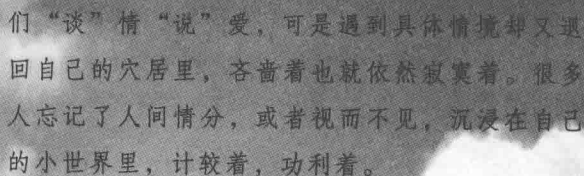 们“谈”情“说”爱，可是遇到具体情境却又退
回自己的穴居里，吝啬着也就依然寂寞着。很多
人忘记了人间情分，或者视而不见，沉浸在自己
的小世界里，计较着，功利着。